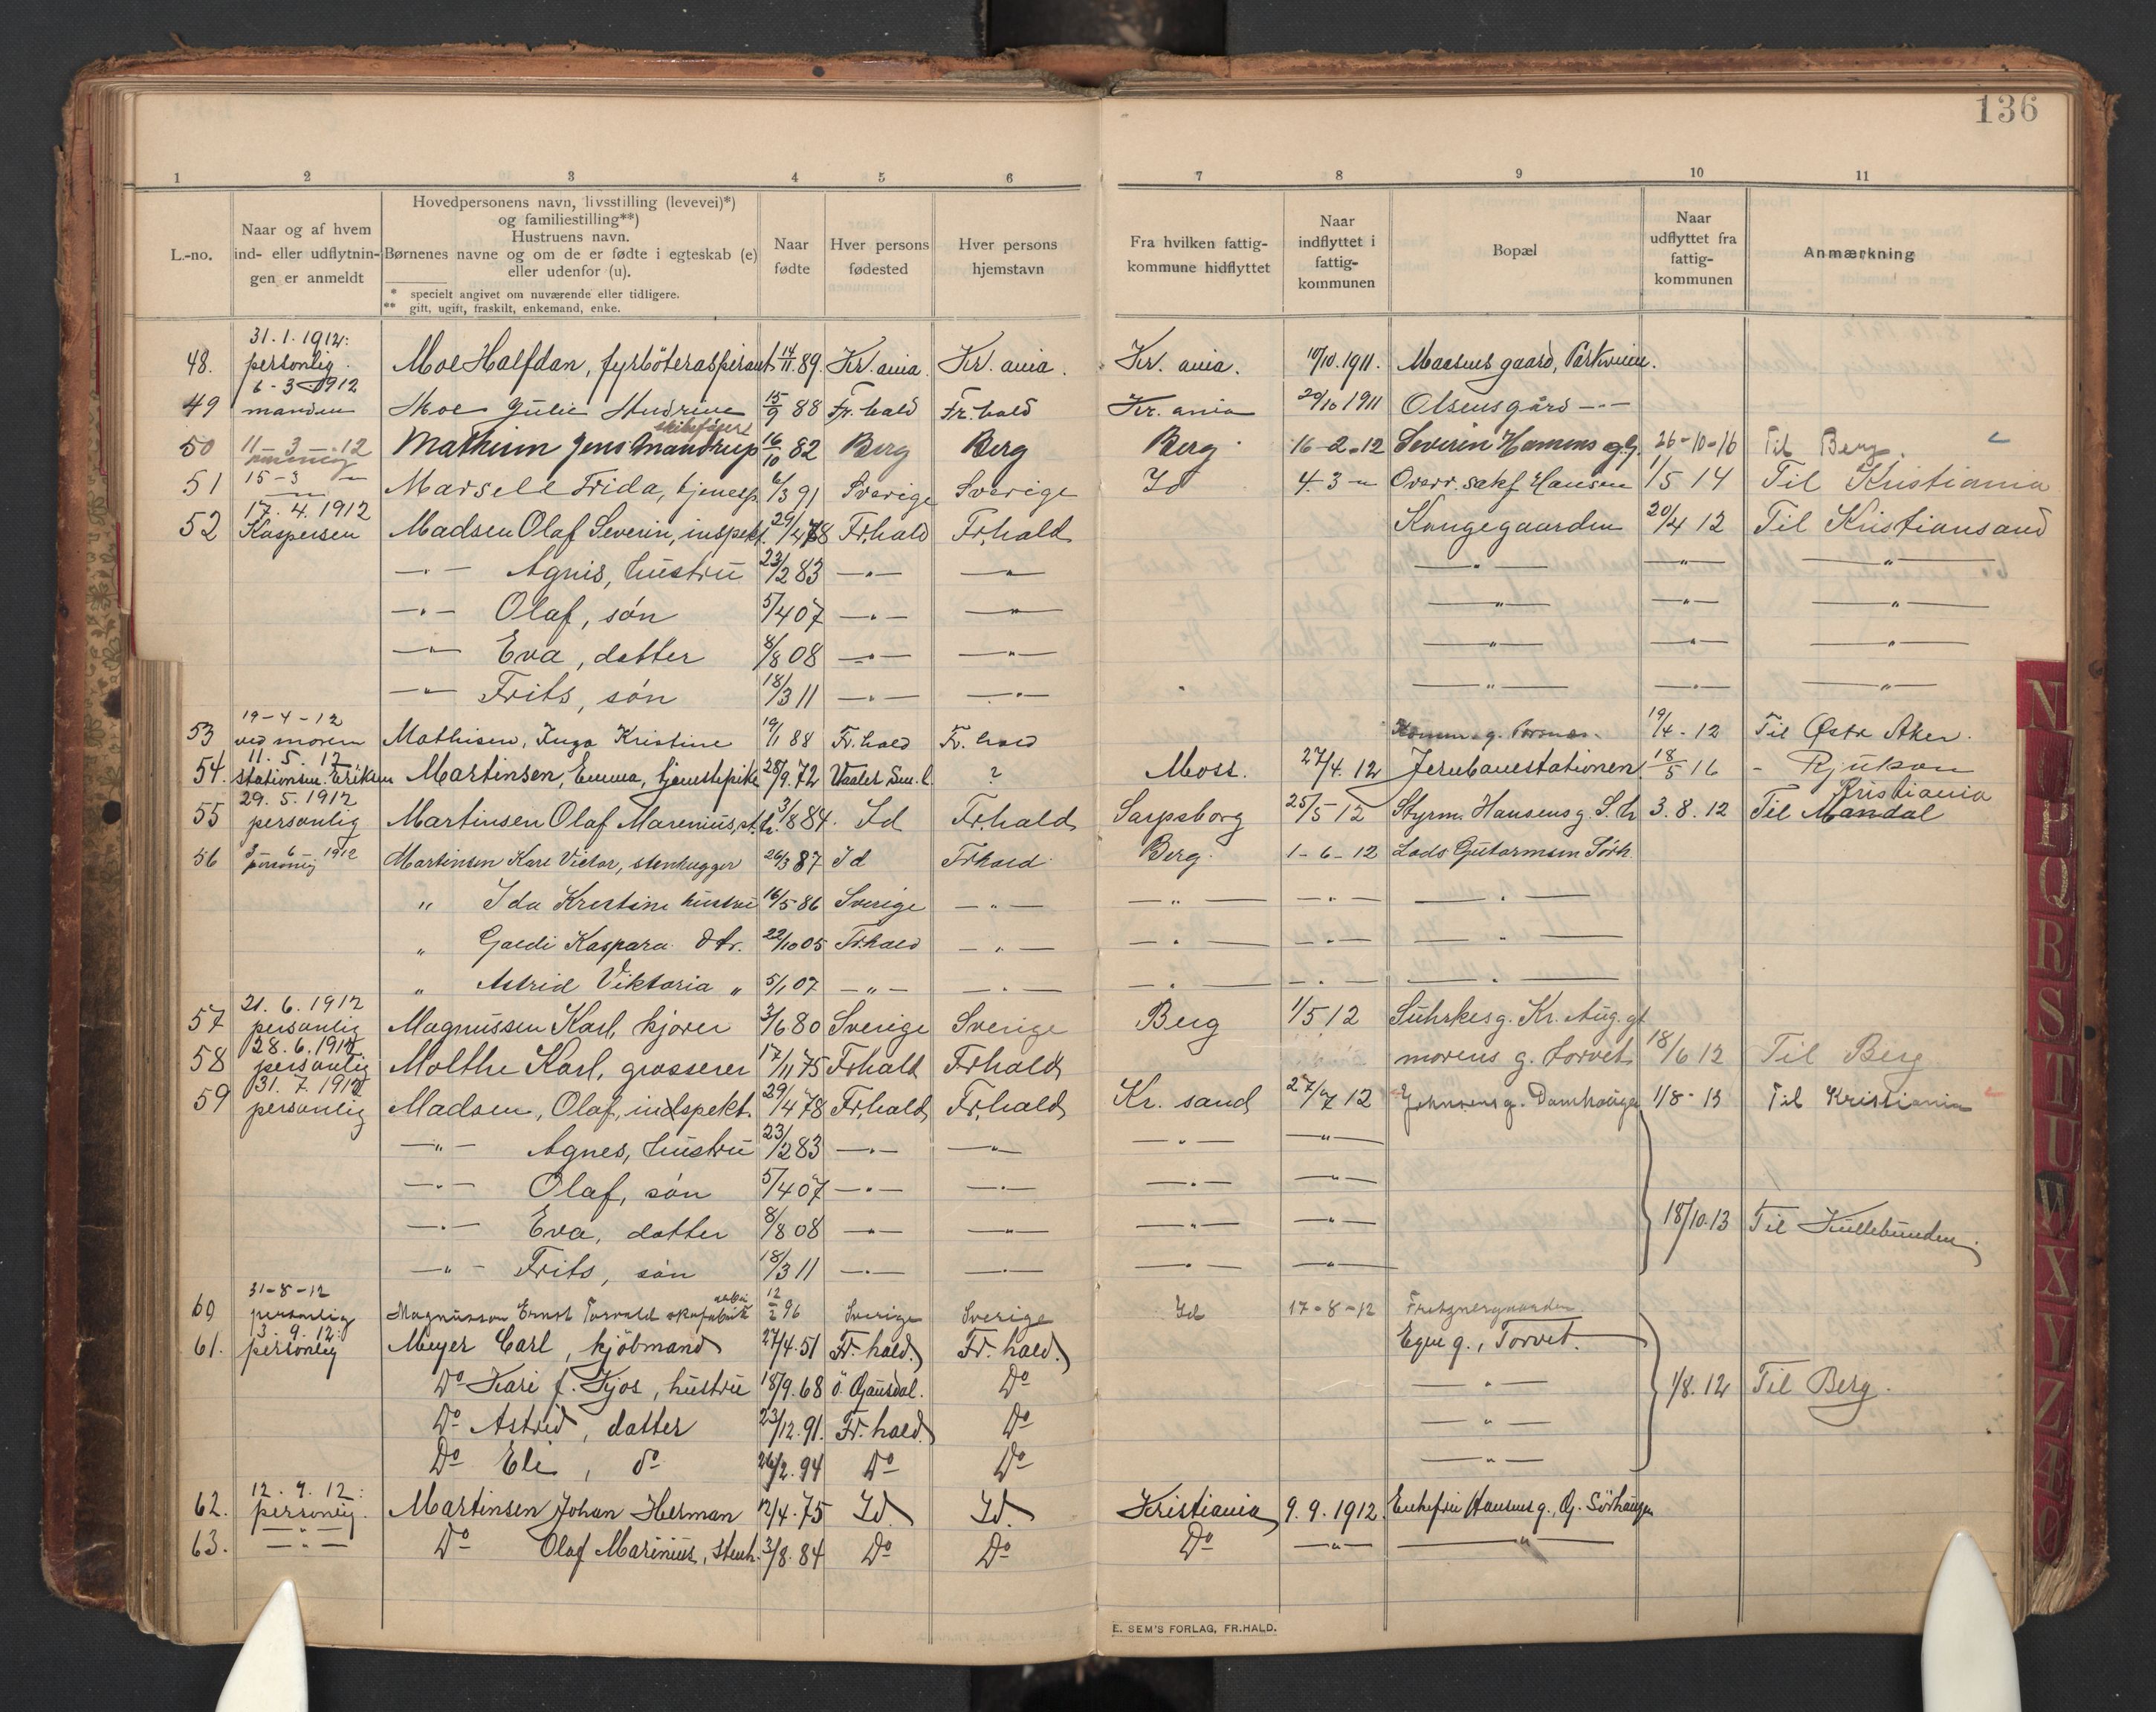 136
1 2 3 4 5 6 7 8 9 10 11
L.-no.
Naar og af hvem
ind- eller udflytnin-
gen er anmeldt
Hovedpersonens navn, livsstilling (levevei)*)
og familiestilling**)
Hustruens navn.
Børnenes navne og om de er fødte i egteskab (e)
eller udenfor (u).
* specielt angivet om nuværende eller tidligere.
** gift, ugift, fraskilt, enkemand, enke.
Naar
fødte
Hver persons
fødested
Hver persons
hjemstavn
Fra hvilken fattig-
kommune hidflyttet
Naar
indflyttet i
fattig-
kommunen
Bopæl
Naar
udflyttet fra
fattig-
kommunen
Anmærkning
31.1.1912:
48. personlig. Moe Halfdan, fyrböteraspirant 14/11.89. Kr.ania. Kr.ania. Kr.ania. 10/10.1911. Maasens gaard, Parkveien.
6-3-1912
49 manden Moe Julie Andrine 15/9 88 Fr.hald Fr.hald Kr.ania 20/10 1911 Olsensgård -"-
50 11-3-12 Jens Mandrup 16/10 82 Berg Berg Berg 16-2-12 Severin g. 26-10-16 Til Berg.
51 15-3 -"- Frida, tjenesp. 6/3 91 Sverige Sverige Id 4.3 -"- Overr.sakf. Hansen 1/5 14 Til Kristiania
17.4.1912
52 Kaspersen Madsen Olaf Severin, inspekt. 29/4 78 Fr.hald Fr.hald Kongegaarden 20/4 12 Til Kristiansand
-"- Agnis, hustru 23/2 83 -"- -"- -"- -"- -"-
-"- Olaf, sön 5/4 07 -"- -"- -"- -"- -"-
-"- Eva, datter 8/8 08 -"- -"- -"- -"- -"-
-"- Frits, sön 18/3 11 -"- -"- -"- -"- -"-
19-4-12
53 ved moren Mathisen, Inga Kristine 19/1 88 Fr.hald Fr.hald 19/4-12 Til Østr Aker.
11.5.12
54. stationsm. Eriksen Martinsen, Emma, tjenestepike 28/9.72 Vaaler Sm.l. ? Moss. 27/4.12 Jernbanestationen 18/5 16 - Rjukan
29.5.1912 Kristiania
55 personlig Martinsen Olaf Marenius, st.h. 3/8 84. Id Fr.hald Sarpsborg 25/5-12 Styrm. Hansens g. S.h 3.8.12 Til Mandal
3-6-1912
56 personlig Martinsen Karl Victor, stenhugger 26/3 87 Id Fr.hald Berg. 1-6-12 Lods Gutormsen Sörh.
" Ida Kristine hustru 16/5-86 Sverige -"- -"- -"- -"-
" Kaspara dtr. 22/10 05 Fr.hald -"- -"- -"- -"-
" Astrid Viktoria " 5/1 07 -"- -"- -"- -"- -"-
21.6.1912
57 personlig Magnussen Karl, kjører 3/6 80 Sverige Sverige Berg 1/5 12 Suhrkes g. Kr. Aug. gt
28.6.1912
58 personlig Molthe Karl, grosserer 17/11 75 Fr.hald Fr.hald morens g. torvet 18/6 12 Til Berg
31.7.1912
59 personlig Madsen, Olaf, inspekt. 29/4 78 Fr.hald Fr.hald Kr.sand 27/7 12 Johnsens g. Damhaugen 1/8-13 Til Kristiania
-"- Agnes, hustru 23/2 83 -"- -"- -"- -"-
-"- Olaf, sön 5/4 07 -"- -"- -"- -"-
-"- Eva, datter 8/8 08 -"- -"- -"- -"- 18/10.13 Til Kullebunden
-"- Frits, sön 18/3 11 -"- -"- -"- -"-
31-8-12
60 personlig Magnusson Ernst Torvald skofabrik arbei 12/2 96 Sverige Sverige Id 17-8-12
3.9.12:
61. personlig Meyer Carl, kjöbmand 27/4.51 Fr.hald. Fr.hald. Egne g., Torvet.
Do Kari f. Kjos, hustru 18/9.68 ö. Gausdal. Do -"- 1/8.12 Til Berg.
Do Astrid, datter 23/12.91. Fr.hald. Do -"-
Do Eli, do 26/2.94 Do Do -"-
12.9.12:
62. personlig. Martinsen Johan Herman 12/4.75 Id. Id. Kristiania 9.9.1912. Enkefru Hansens g., G. Sörhaugen
63. -"- Do Olaf Marinius, stenh. 3/8.84 Do Do Do -"- -"-
E. SEM'S FORLAG, FR.HALD.
N
P
Q
R
S
T
U
W
X
Y
Z
Æ
Ø